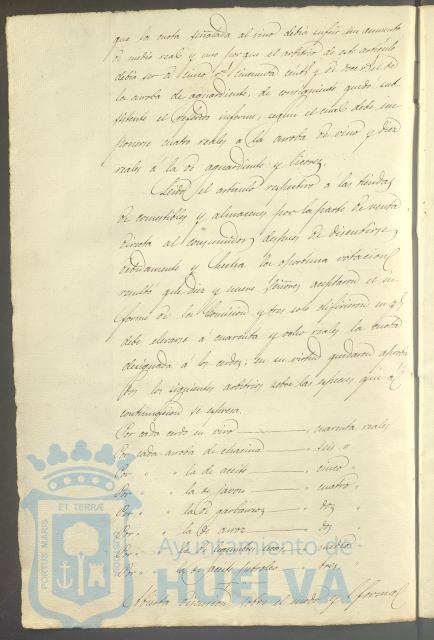 que la cuota señalada al vino debia sufrir un aumento
de medio real y uno porque el arbitrio de este artículo
debia ser a cinco rs cincuenta cénts y de doce el de
la arroba de aguardiente, de consiguiente quedó sub
sistente el referido informe, según el cual debe im
ponerse cuatro reales a la arroba de vino y diez
reales á la de aguardiente y licores.
Leido el artículo respectivo a las tiendas
de comestibles y almacenes por la parte de venta
directa al consumidor, despues de discutirse
detenidamente y hecha la oportuna votacion
resultó que diez y nueve Señores aceptaron el in
forme de la Comision y tres solo disintieron en q.e
debe elevarse a cuarenta y ocho reales la cuota
designada á los cerdos; en su virtud quedaron aproba
dos los siguientes arbitrios sobre las especies que á
continuacion se espresa.
Por cada cerdo en vivo " cuarenta reales
Por cada arroba de chacina " seis "
Por " " la de aceite " cinco "
Por " " la de jabon " cuatro "
Por " " la de garbanzos " dos "
Por " " la de arroz " dos "
Por " " la de " medio "
Por " " la de aceite petroleo " tres "
Abierta discusion sobre el modo y forma
PORTUS MARIS
ET TERRÆ
CUSTODIA
Ayuntamiento de
HUELVA